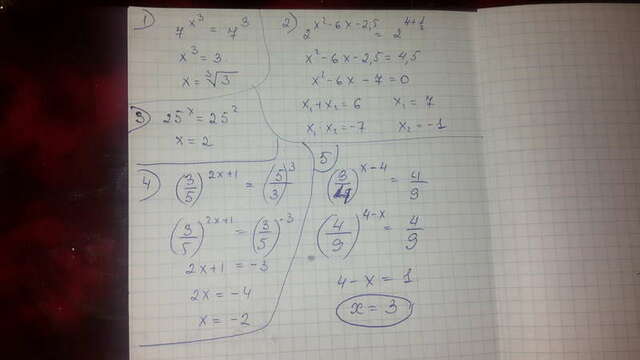 1) 7^{x^3} = 7^3
x^3 = 3
x = ∛3
2) 2^{x^2-6x-2,5} = 2^{4+\frac{1}{2}}
x^2-6x-2,5 = 4,5
x^2-6x-7 = 0
x_1+x_2 = 6 x_1 = 7
x_1 x_2 = -7 x_2 = -1
3) 25^x = 25^2
x = 2
4) (3/5)^{2x+1} = (5/3)^3
(3/5)^{2x+1} = (3/5)^{-3}
2x+1 = -3
2x = -4
x = -2
5) ^{x-4} = 4/9
(4/9)^{4-x} = 4/9
4-x = 1
x = 3